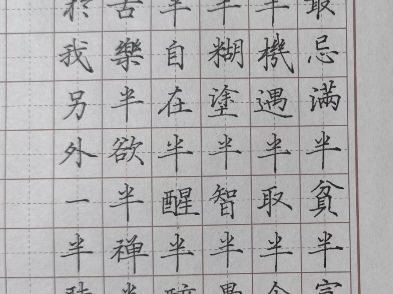 最忌满半貧半富
半機遇半取半命
半糊塗半智半愚
半自在半醒半醉
苦樂半欲半禅半
於我另外一半